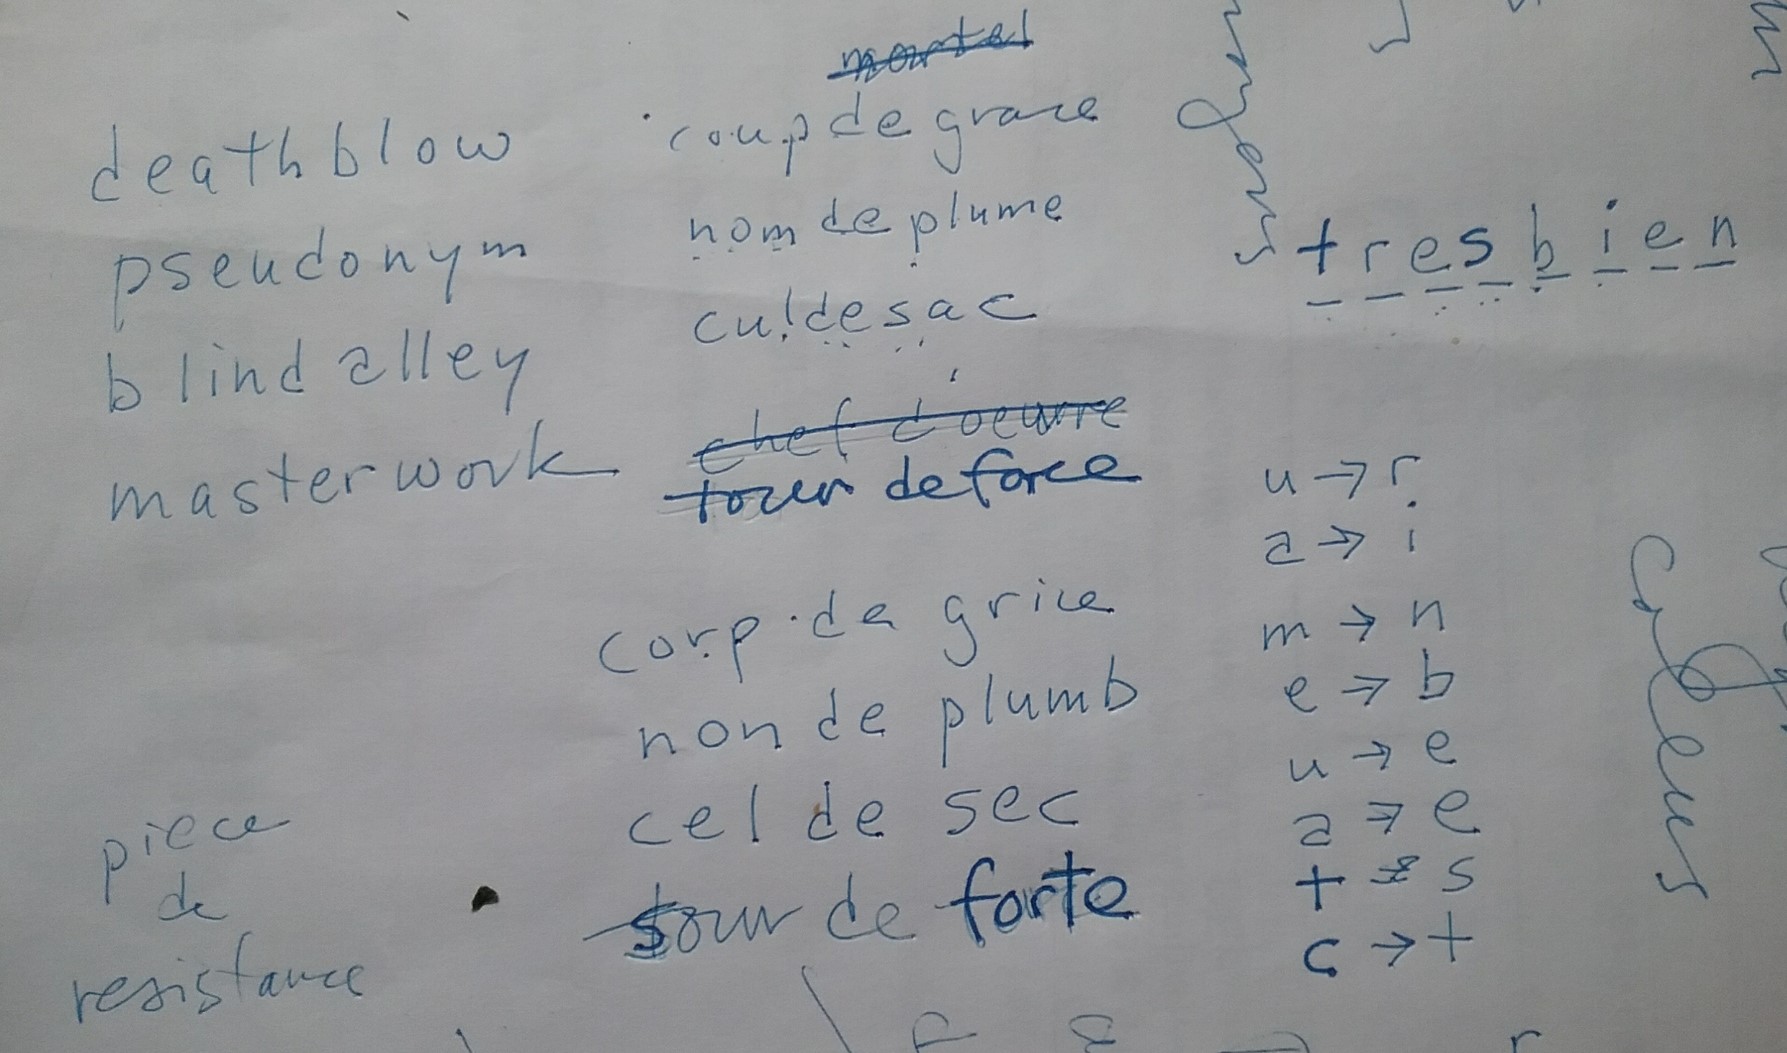 mortel
deathblow
coup de grace
pseudonym
nom de plume
tres bien
blind alley
cul de sac
masterwork
chef d'oeuvre
tour de force
u → r
a → i
corp de grice
m → n
non de plumb
e → b
u → e
cel de sec
a → e
piece
de
resistance
sour de forte
t → s
c → t